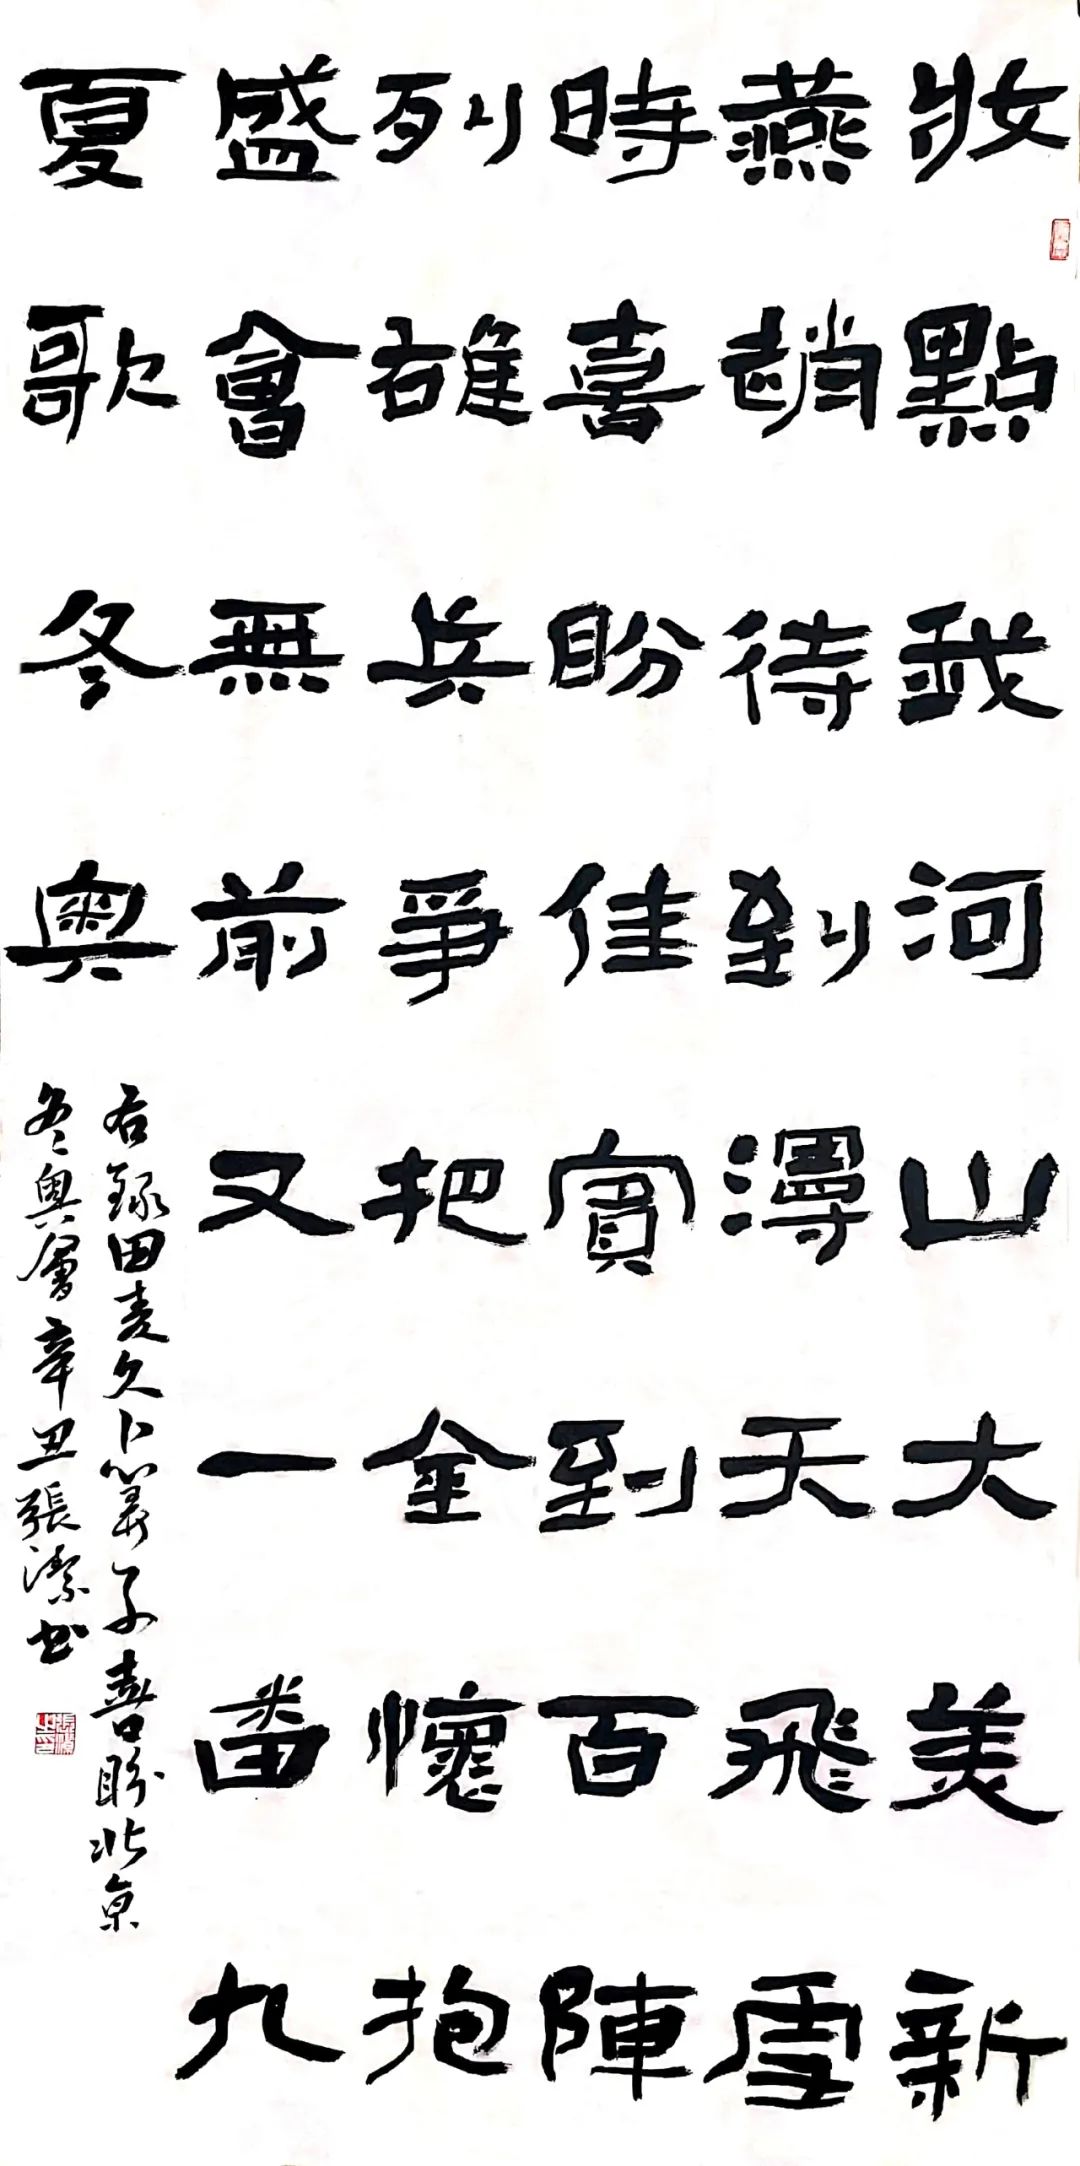 妝點我河山大美新
燕趙待到漫天飛雪
時喜盼佳賓到百陣
列雄兵爭把金懷抱
盛會無前又一番九
夏歌冬奧
右錄田麦久卜算子喜盼北京
冬奧會辛丑張潔书